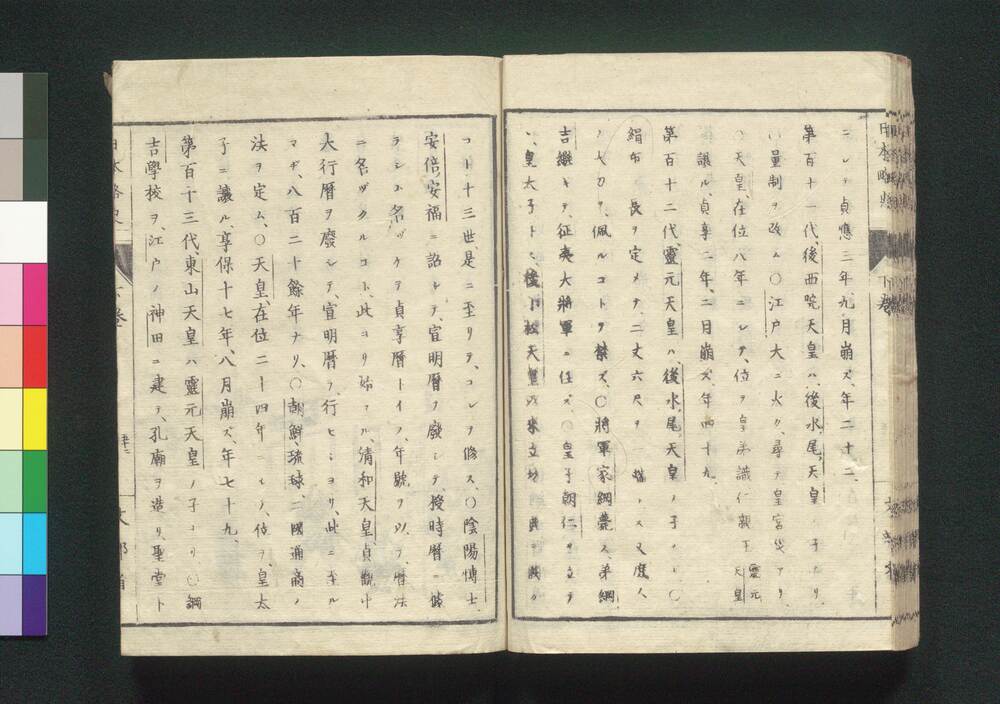 日本略史 下巻
ニシテ貞應三年九月崩ズ、年二十二、
第百十一代、後西院天皇ハ、後水尾天皇ノ子ナリ、
量制ヲ改ム〇江戸大ニ火ク、尋テ皇宮災アリ、
〇天皇、在位八年ニシテ、位ヲ皇弟識仁親王 靈元天皇
ニ讓ル、貞享二年、二月崩ズ、年四十九、
第百十二代、靈元天皇ハ、後水尾天皇ノ子ナリ、〇
絹布ノ長ヲ定メテ、二丈六尺ヲ一端トス、又庶人
ノ大刀ヲ佩ルコトヲ禁ズ、〇將軍家綱薨ス、弟綱
吉繼ギテ、征夷大將軍ニ任ズ、〇皇子朝仁ヲ立テ
皇太子トシ、後小松天皇以來立坊
コト十三世、是ニ至リテ、コレヲ修ス、〇陰陽博士、
安倍安福ニ詔シテ、宣明曆ヲ廢シテ授時曆ニ倣
ラシメ名ヅケテ貞享曆トイフ、年號ヲ以テ曆法
ニ名ヅクルコト、此ヨリ始マル、清和天皇、貞觀中
大行曆ヲ廢シテ、宣明曆ヲ行ヒシヨリ、此ニ至ル
マデ、八百二十餘年ナリ、〇朝鮮、琉球、二國通商ノ
法ヲ定ム、〇天皇、在位二十四年ニシテ、位ヲ皇太
子ニ讓ル、享保十七年、八月崩ズ、年七十九、
第百十三代、東山天皇ハ靈元天皇ノ子ナリ〇綱
吉學校ヲ、江戸ノ神田ニ建テ、孔廟ヲ造リ、聖堂ト
日本略史 下巻 文部省